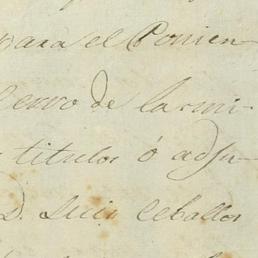 para el Ponien-
Cerro de la mi-
titulos ó adju-
D. Luis Ceballos